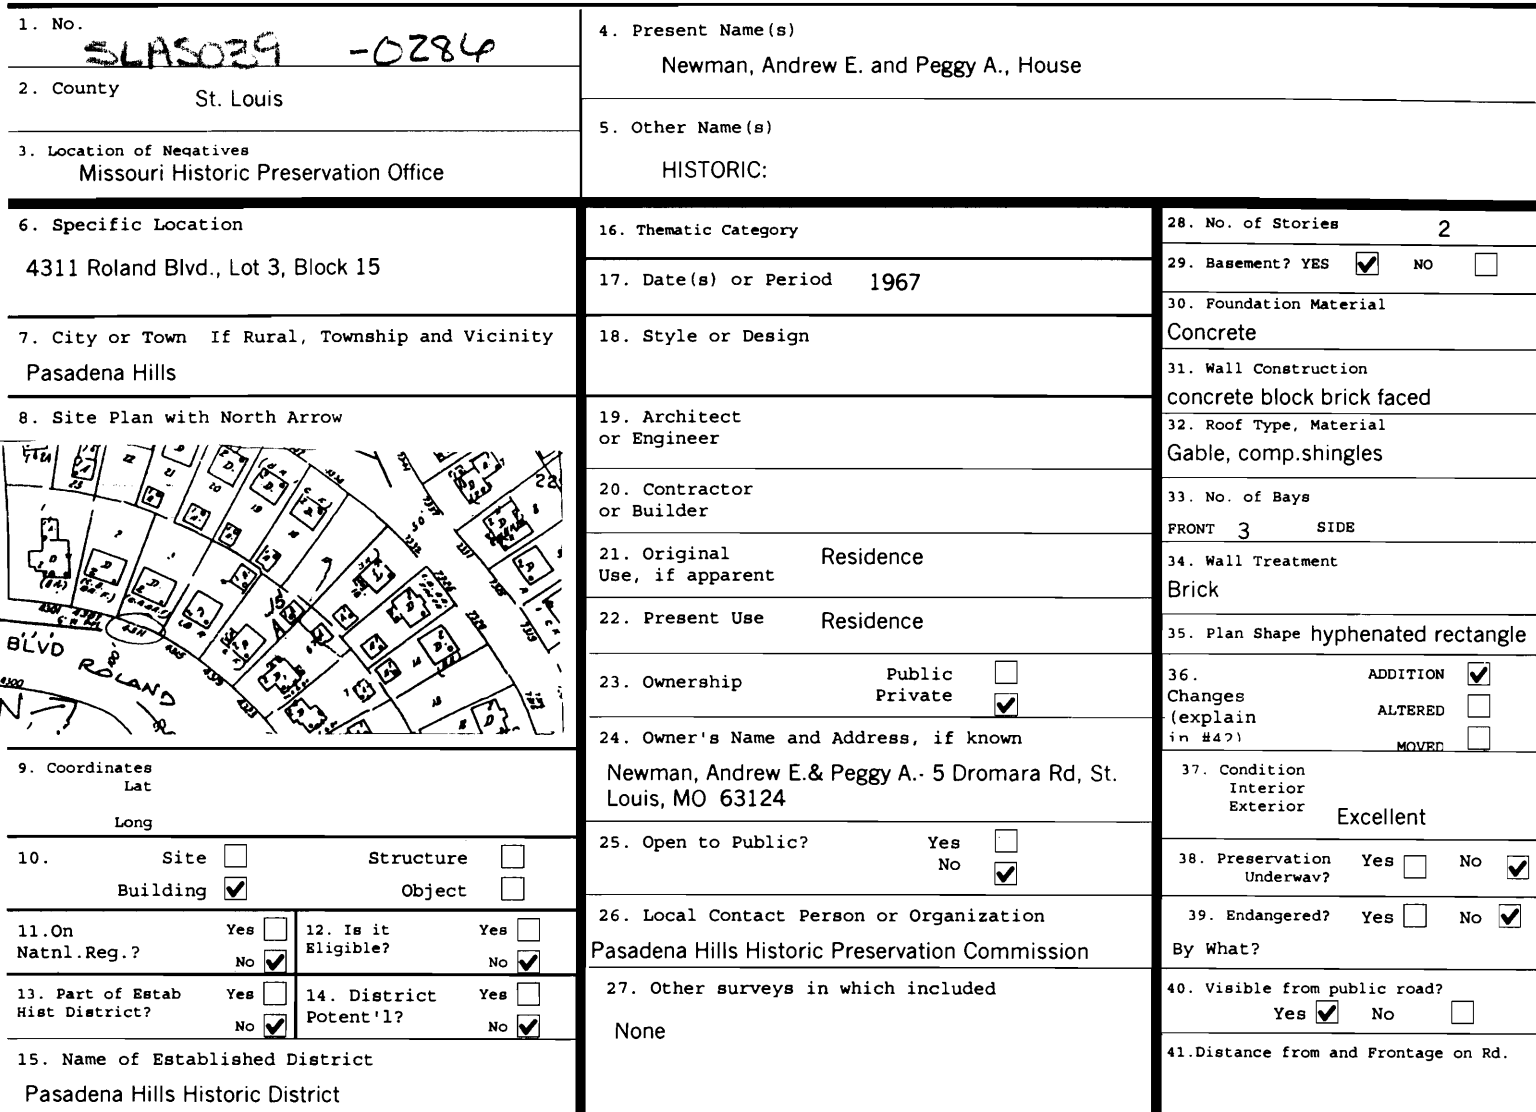 1. No.
SLAS039 -0286
2. County
St. Louis
3. Location of Negatives
Missouri Historic Preservation Office
4. Present Name(s)
Newman, Andrew E. and Peggy A., House
5. Other Name(s)
HISTORIC:
6. Specific Location
4311 Roland Blvd., Lot 3, Block 15
7. City or Town If Rural, Township and Vicinity
Pasadena Hills
8. Site Plan with North Arrow
22
21
20
19
22
15
A
4311
BLVD
ROLAND
4300
N
9. Coordinates
Lat
Long
10. Site Structure
Building ✔ Object
11.On
Natnl.Reg.?
Yes
No ✔
12. Is it
Eligible?
Yes
No ✔
13. Part of Estab
Hist District?
Yes
No ✔
14. District
Potent'l?
Yes
No ✔
15. Name of Established District
Pasadena Hills Historic District
16. Thematic Category
17. Date(s) or Period 1967
18. Style or Design
19. Architect
or Engineer
20. Contractor
or Builder
21. Original
Use, if apparent
Residence
22. Present Use Residence
23. Ownership
Public
Private ✔
24. Owner's Name and Address, if known
Newman, Andrew E.& Peggy A.- 5 Dromara Rd, St.
Louis, MO 63124
25. Open to Public?
Yes
No ✔
26. Local Contact Person or Organization
Pasadena Hills Historic Preservation Commission
27. Other surveys in which included
None
28. No. of Stories 2
29. Basement? YES ✔ NO
30. Foundation Material
Concrete
31. Wall Construction
concrete block brick faced
32. Roof Type, Material
Gable, comp.shingles
33. No. of Bays
FRONT 3 SIDE
34. Wall Treatment
Brick
35. Plan Shape hyphenated rectangle
36.
Changes
(explain
in #42)
ADDITION ✔
ALTERED
MOVED
37. Condition
Interior
Exterior
Excellent
38. Preservation
Underway?
Yes No ✔
39. Endangered? Yes No ✔
By What?
40. Visible from public road?
Yes ✔ No
41.Distance from and Frontage on Rd.